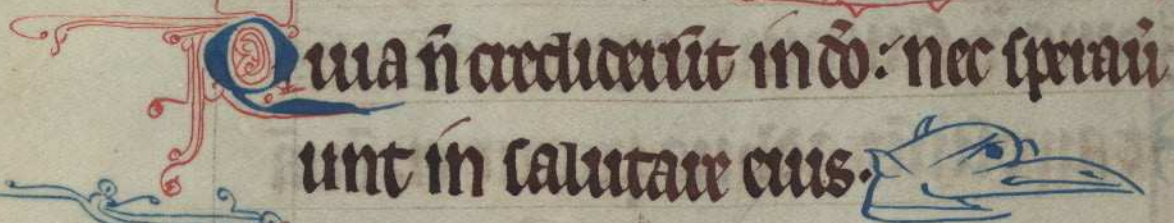 Quia n̄ crediderūt in dō: nec speraū
unt in salutare eius.